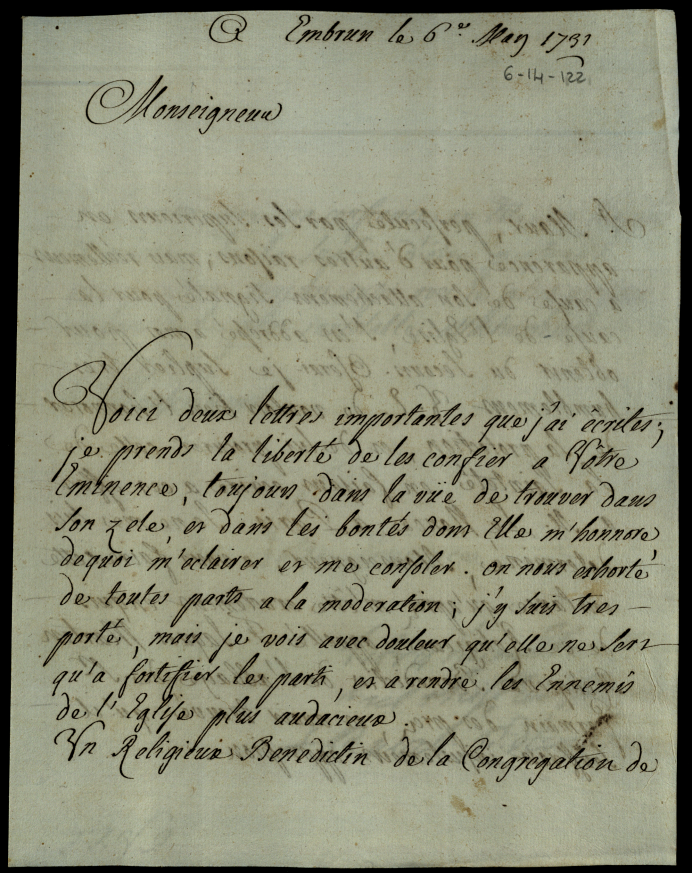 A Embrun le 6.e May 1731
6-14-122
Monseigneur
Voici deux lettres importantes que j'ai écrites;
je prends la liberté de les confier a Vôtre
Eminence, toujours dans la vüe de trouver dans
son zele, et dans les bontés dont Elle m'honnore
dequoi m'eclairer et me consoler. on nous exhorte
de toutes parts a la moderation; j'y suis tres
porté, mais je vois avec douleur qu'elle ne sert
qu'a fortifier le parti, et a rendre les Ennemis
de l'Eglise plus audacieux
Un Religieux Benedictin de la Congregation de